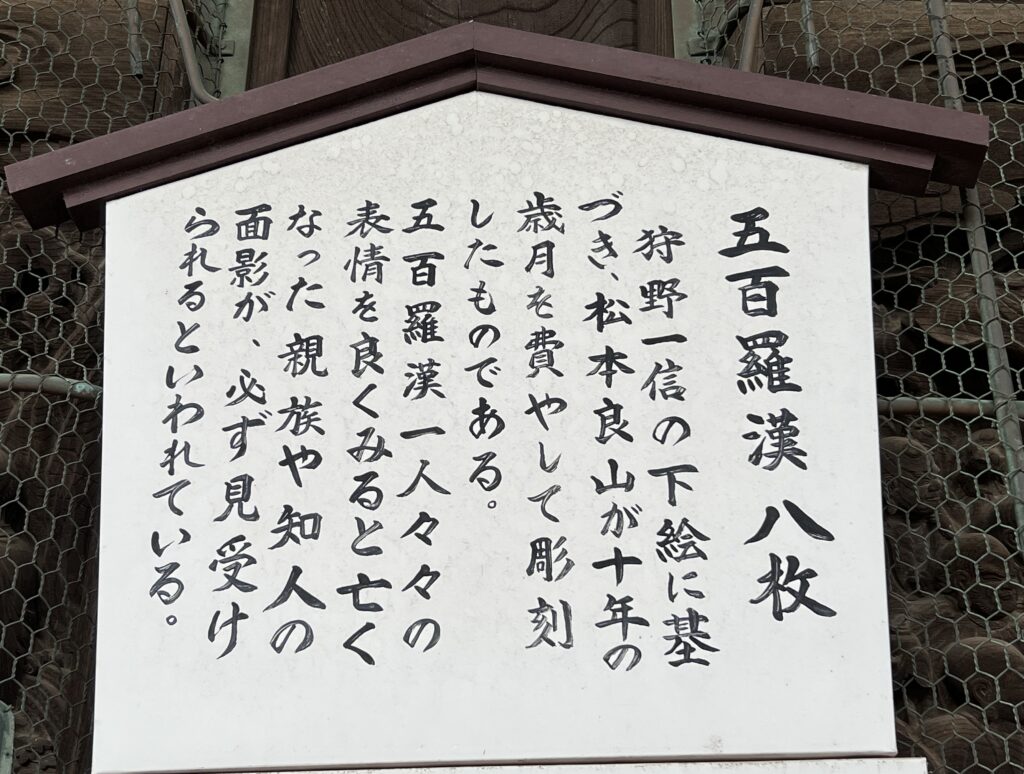 五百羅漢 八枚
狩野一信の下絵に基
づき、松本良山が十年の
歳月を費やして彫刻
したものである。
五百羅漢一人々々の
表情を良くみると亡く
なった親族や知人の
面影が、必ず見受け
られるといわれている。